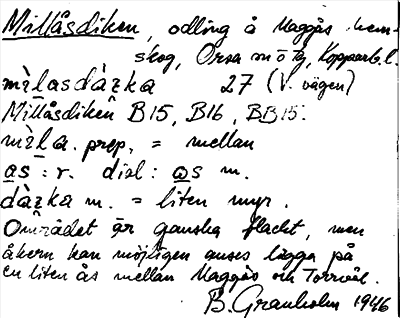 Millåsdiken, odling å Maggås hem-
skog, Orsa sn o tg, Kopparb. l.
mìlasdàzka 27 (V. vägen)
Millåsdiken B15, B16, BB15.
mìla. prep. = mellan
as : r. dial : ωs m.
dàzka m. = liten myr.
Området är ganska flackt, men
åkern kan möjligen anses ligga på
en liten ås mellan Maggås och Torrvål.
B. Granholm 1946